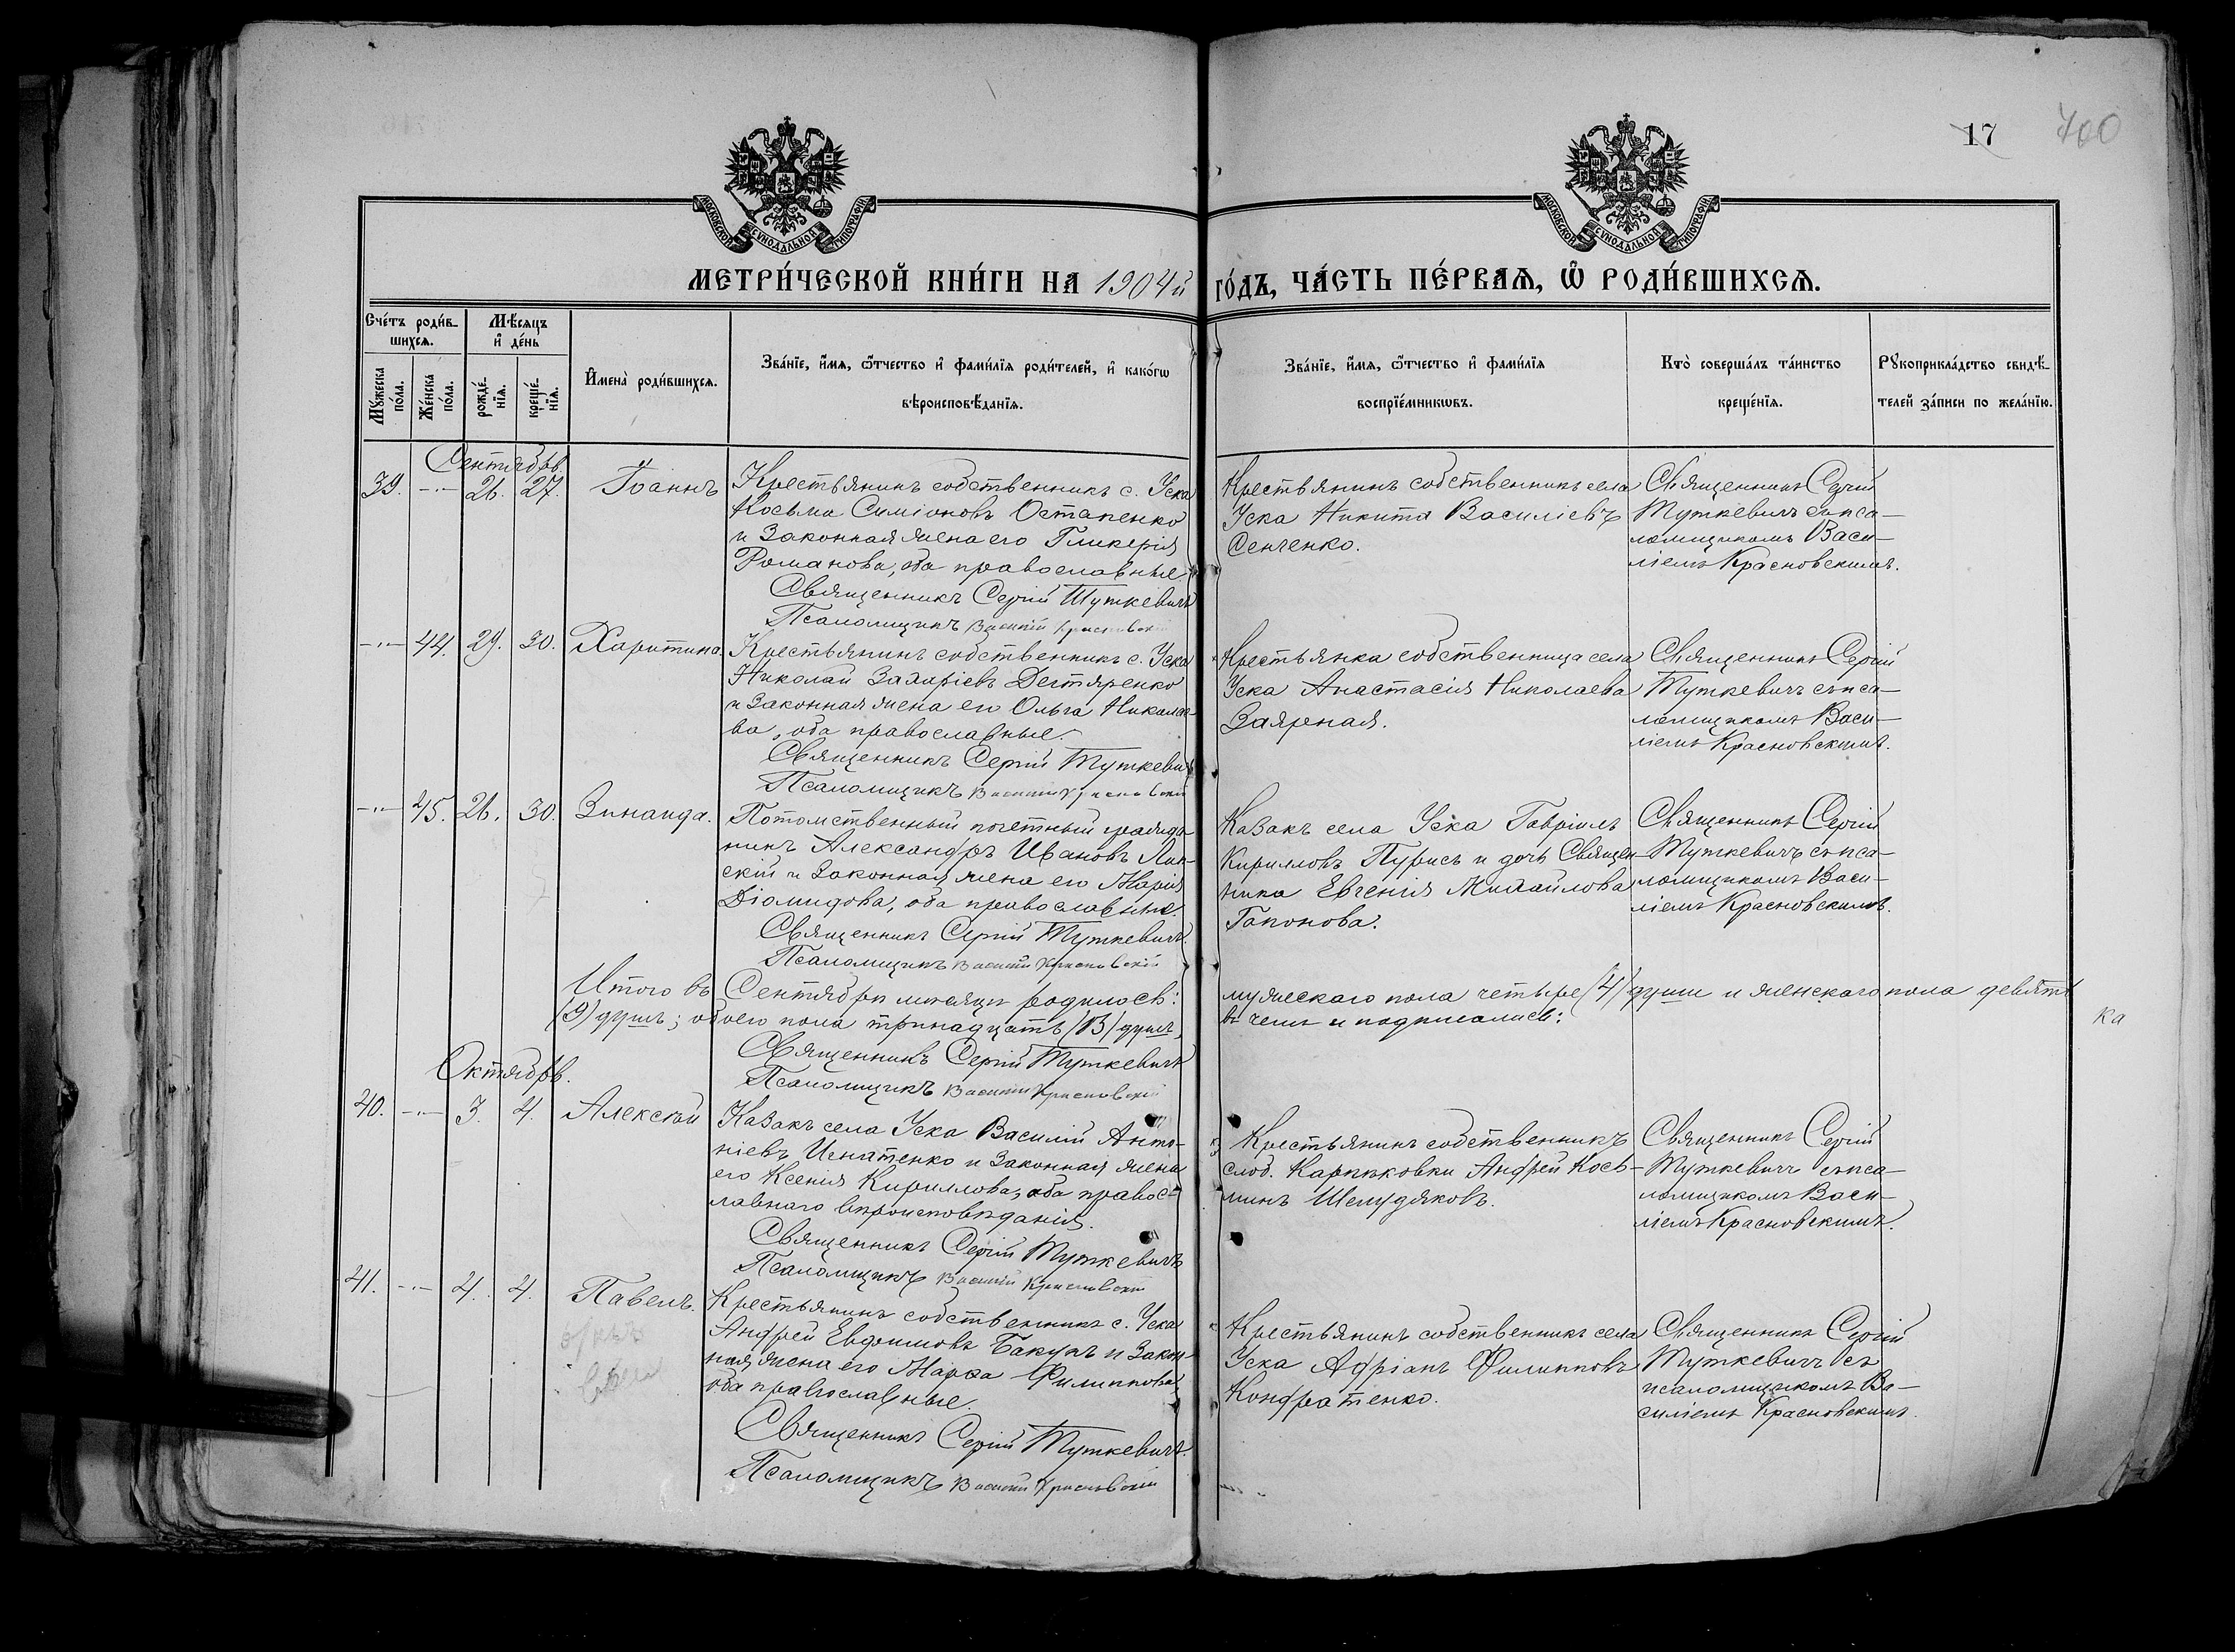 17
700
МОСКОВСКОЙ СѴНОДАЛЬНОЙ ТИПОГРАФІИ
МОСКОВСКОЙ СѴНОДАЛЬНОЙ ТИПОГРАФІИ
МЕТРИ́ЧЕСКОЙ КНИ́ГИ НА 1904й го́дъ, ЧА́СТЬ ПЕ́РВАѦ, Ѿ РОДИ́ВШИХСѦ.
Сче́тъ роди́в-
шихсѧ.
Мꙋ́жеска по́ла.
Же́нска по́ла.
Мѣ́сѧцъ
и҆ де́нь
рожде́-
нїѧ.
креще́-
нїѧ.
И҆мена̀ роди́вшихсѧ.
Зва́нїе, и҆́мѧ, ѻ҆́тчество и҆ фами́лїѧ роди́телей, и҆ како́гѡ
вѣроисповѣ́данїѧ.
Зва́нїе, и҆́мѧ, ѻ҆́тчество и҆ фами́лїѧ
воспрїе́мникѡвъ.
Кто̀ соверша́лъ та́инство
креще́нїѧ.
Рꙋкоприкла́дство свидѣ́-
телей за́писи по жела́нїю.
Сентябрь.
39. -"- 26. 27. Іоаннъ
Крестьянинъ собственникъ с. Уска
Косьма Симіоновъ Остапенко
и законная жена его Гликерія
Романова, оба православные.
Священникъ Сергій Туткевичъ
Псаломщикъ Василій Красновскій
Крестьянинъ собственникъ села
Уска Никита Василіевъ
Сенченко.
Священникъ Сергій
Туткевичъ съ пса-
ломщикомъ Васи-
ліемъ Красновскимъ.
-"- 44. 29. 30. Харитина.
Крестьянинъ собственникъ с. Уска
Николай Захаріевъ Дегтяренко
и законная жена его Ольга Николае-
ва, оба православные.
Священникъ Сергій Туткевичъ
Псаломщикъ Василій Красновскій
Крестьянка собственница села
Уска Анастасія Николаева
Заярная.
Священникъ Сергій
Туткевичъ съ пса-
ломщикомъ Васи-
ліемъ Красновскимъ.
-"- 45. 26. 30. Зинаида.
Потомственный почетный гражда-
нинъ Александръ Ивановъ Лин-
скій и законная жена его Марія
Діомидова, оба православные.
Священникъ Сергій Туткевичъ.
Псаломщикъ Василій Красновскій
Казакъ села Уска Гавріилъ
Кирилловъ Пурисъ и дочь Священ-
ника Евгенія Михайлова
Гапонова.
Священникъ Сергій
Туткевичъ съ пса-
ломщикомъ Васи-
ліемъ Красновскимъ.
Итого въ Сентябрѣ мѣсяцѣ родилось: мужескаго пола четыре (4) души и женскаго пола девять
(9) душъ; обоего пола тринадцать (13) душъ, въ чемъ и подписались:
ка
Священникъ Сергій Туткевичъ
Псаломщикъ Василій Красновскій
Октябрь.
40. -"- 3. 4. Алексѣй
Казакъ села Уска Василій Анто-
ніевъ Игнатенко и законная жена
его Ксенія Кириллова, оба правос-
лавнаго вѣроисповѣданія.
Священникъ Сергій Туткевичъ
Псаломщикъ Василій Красновскій
Крестьянинъ собственникъ
слоб. Андрей Кось-
минъ Шелудяковъ.
Священникъ Сергій
Туткевичъ съ пса-
ломщикомъ Васи-
ліемъ Красновскимъ.
41. -"- 4. 4. Павелъ.
Крестьянинъ собственникъ с. Уска
Андрей Евфимовъ Бакунъ и закон-
ная жена его Марѳа Филиппова,
оба православные.
Священникъ Сергій Туткевичъ.
Псаломщикъ Василій Красновскій
Крестьянинъ собственникъ села
Уска Адріанъ Филипповъ
Кондратенко.
Священникъ Сергій
Туткевичъ съ
псаломщикомъ Ва-
силіемъ Красновскимъ.